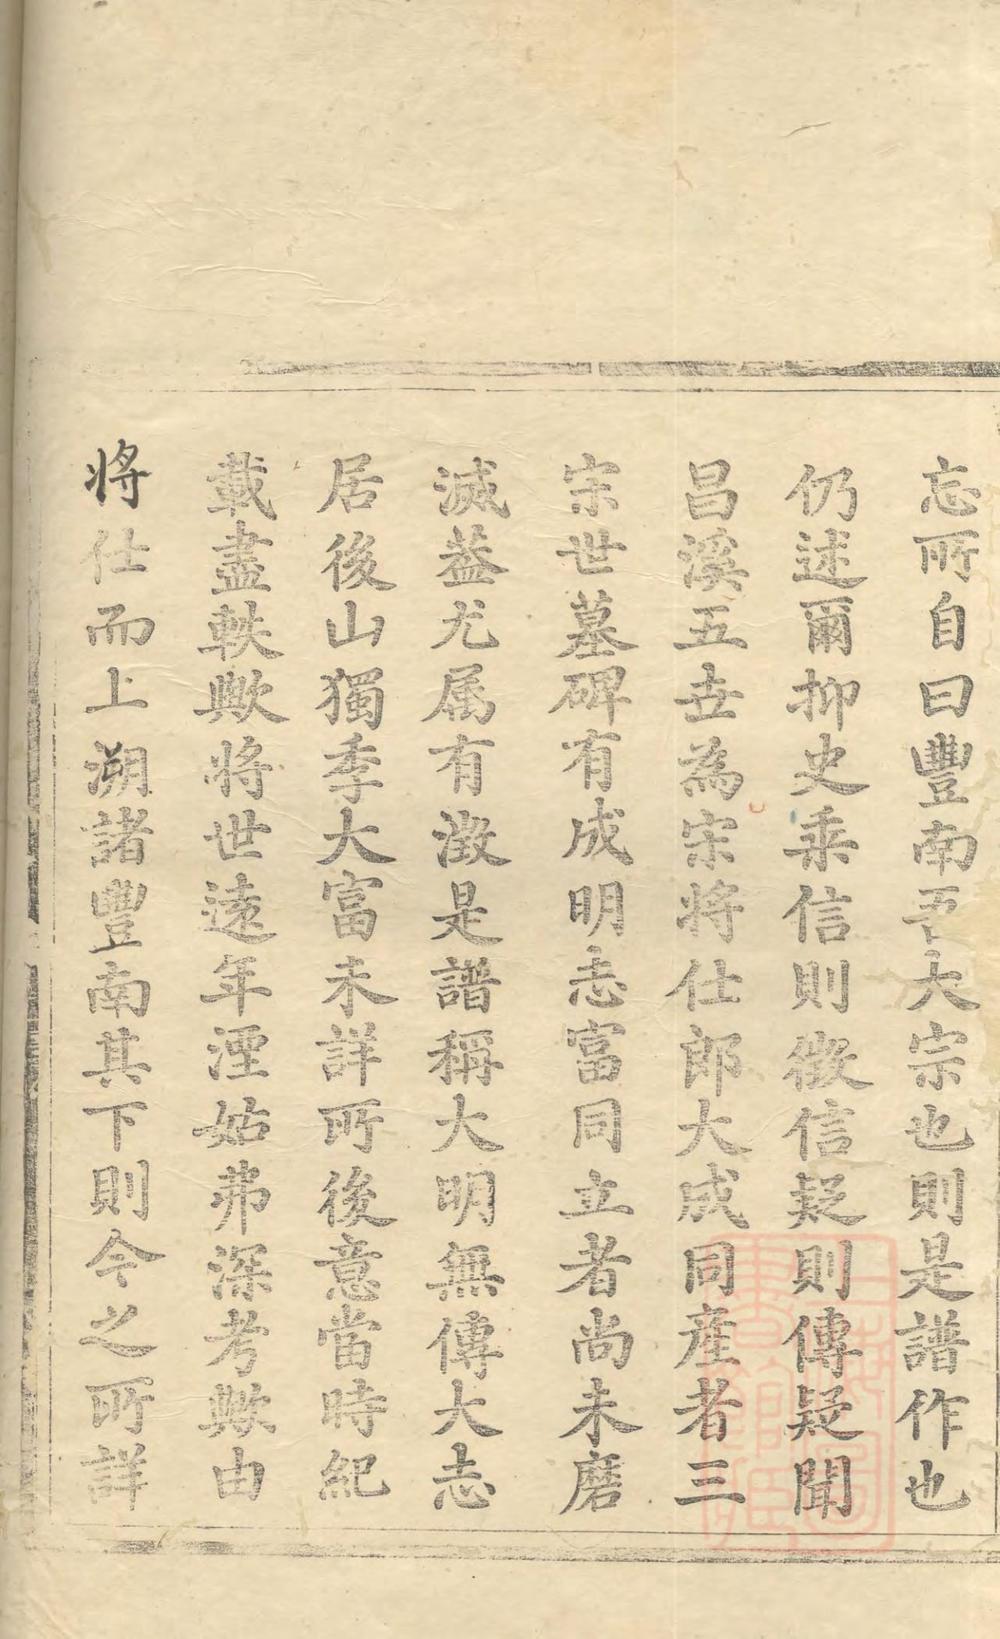 忘所自曰豐南吾大宗也則是譜作也
仍述爾抑史乘信則徵信疑則傳疑聞
昌溪五世為宋將仕郎大成同產者三
宋世墓碑有成明志富同立者尚未磨
滅葢尤属有徵是譜稱大明無傳大志
居後山獨季大富未詳所後意當時紀
載盡軼歟將世遠年湮姑弗深考歟由
將仕而上溯諸豐南其下則今之所詳